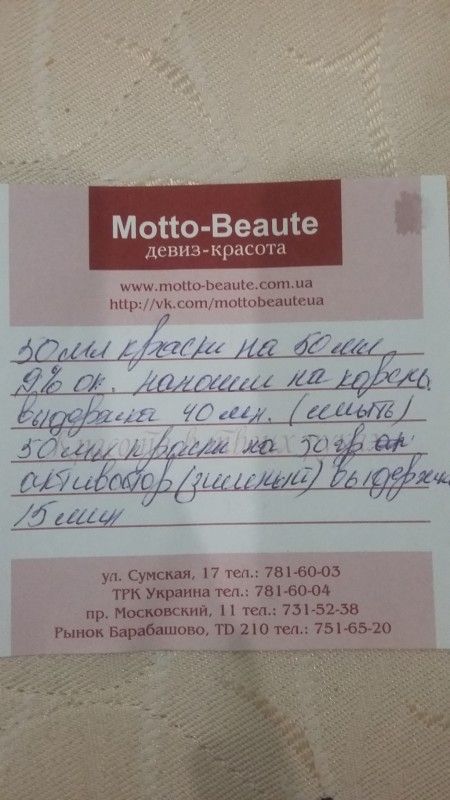 Motto-Beaute
девиз-красота
www.motto-beaute.com.ua
http://vk.com/mottobeauteua
50мл краски на 50мл
9% ок. наносим на корень
выдержка 40мин. (смыть)
50мл краски на 50гр
активатор (зеленый) выдержка
15 мин
ул. Сумская, 17 тел.: 781-60-03
ТРК Украина тел.: 781-60-04
пр. Московский, 11 тел.: 731-52-38
Рынок Барабашово, TD 210 тел.: 751-65-20